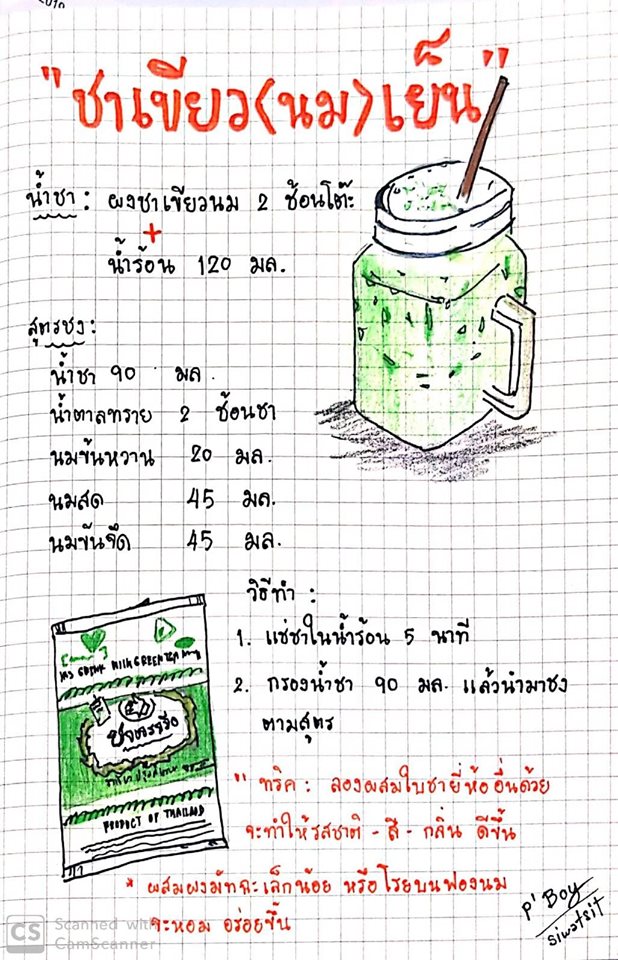 "ชาเขียว(นม)เย็น"
น้ำชา : ผงชาเขียวนม 2 ช้อนโต๊ะ
+
น้ำร้อน 120 มล.
สูตรชง :
น้ำชา 90 มล.
น้ำตาลทราย 2 ช้อนชา
นมข้นหวาน 20 มล.
นมสด 45 มล.
นมข้นจืด 45 มล.
วิธีทำ :
1. แช่ชาในน้ำร้อน 5 นาที
2. กรองน้ำชา 90 มล. แล้วนำมาชง
ตามสูตร
" ทริค : ลองผสมใบชายี่ห้ออื่นด้วย
จะทำให้รสชาติ - สี - กลิ่น ดีขึ้น
* ผสมผงมัทฉะเล็กน้อย หรือโรยบนฟองนม
จะหอม อร่อยขึ้น
MILK GREEN TEA
PRODUCT OF THAILAND
P' Boy
siwatsit
CS Scanned with
CamScanner